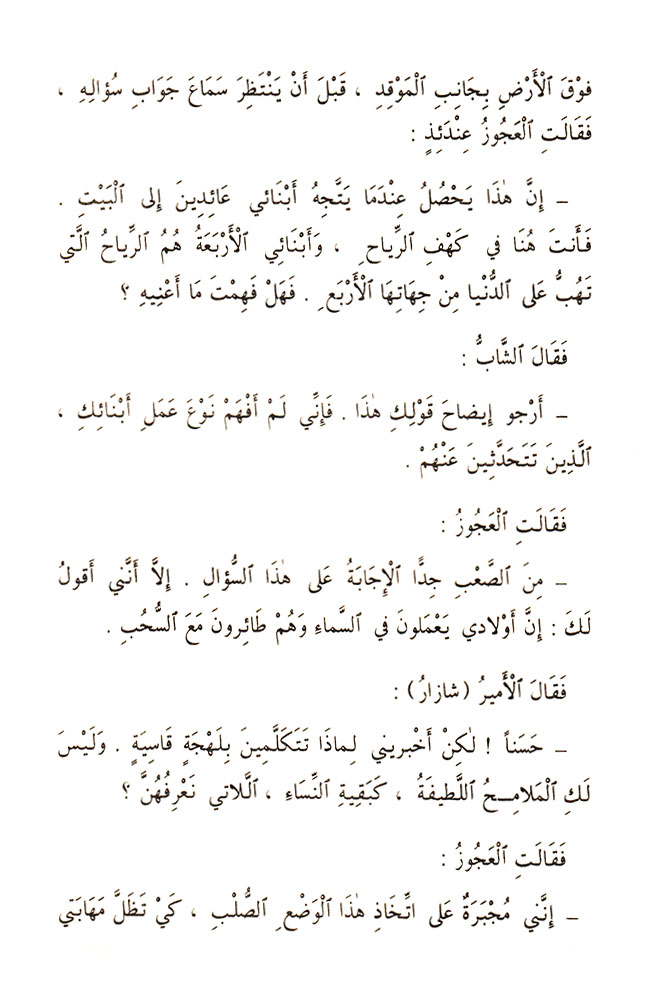 فوْقَ ٱلْأَرْضِ بِجَانِبِ ٱلْمَوْقِدِ ، قَبْلَ أَنْ يَنْتَظِرَ سَمَاعَ جَوَابِ سُؤالِهِ ،
فَقَالَتِ ٱلْعَجُوزُ عِنْدَئِذٍ :
– إِنَّ هٰذَا يَحْصُلُ عِنْدَمَا يَتَّجِهُ أَبْنَائي عَائِدِينَ إلى ٱلْبَيْتِ .
فَأَنتَ هُنَا في كَهْفِ ٱلرِّياحِ ، وَأَبْنَائِي ٱلْأَرْبَعَةُ هُمُ ٱلرِّياحُ ٱلَّتي
تَهُبُّ عَلى ٱلدُّنْيا مِنْ جِهَاتِهَا ٱلْأَرْبَعِ . فَهَلْ فَهِمْتَ مَا أَعْنِيهِ ؟
فَقَالَ ٱلشَّابُّ :
– أَرْجو إِيضاحَ قَوْلِكِ هٰذَا . فَإِنِّي لَمْ أَفْهَمْ نَوْعَ عَمَلِ أَبْنَائِكِ ،
ٱلَّذِينَ تَتَحَدَّثِينَ عَنْهُمْ .
فَقَالَتِ ٱلْعَجُوزُ :
– مِنَ ٱلصَّعْبِ جِدًّا ٱلْإِجَابَةُ عَلى هٰذَا ٱلسُّؤالِ . إِلاَّ أَنَّني أَقولُ
لَكَ : إِنَّ أَوْلادي يَعْمَلونَ في ٱلسَّماءِ وَهُمْ طَائِرونَ مَعَ ٱلسُّحُبِ .
فَقَالَ ٱلْأَميرُ (شازارُ) :
– حَسَناً ! لٰكِنْ أَخْبريني لِماذَا تَتَكَلَّمِينَ بِلَهْجَةٍ قَاسِيَةٍ . وَلَيْسَ
لَكِ ٱلْمَلامِحُ اللَّطيفَةُ ، كَبَقِيةِ النِّسَاءِ ، ٱلَّلاتي نَعْرِفُهُنَّ ؟
فَقَالَتِ ٱلْعَجُوزُ :
– إِنَّني مُجْبَرَةٌ عَلى اتِّخَاذِ هٰذَا ٱلْوَضْعِ ٱلصُّلْبِ ، كَيْ تَظَلَّ مَهَابَتي